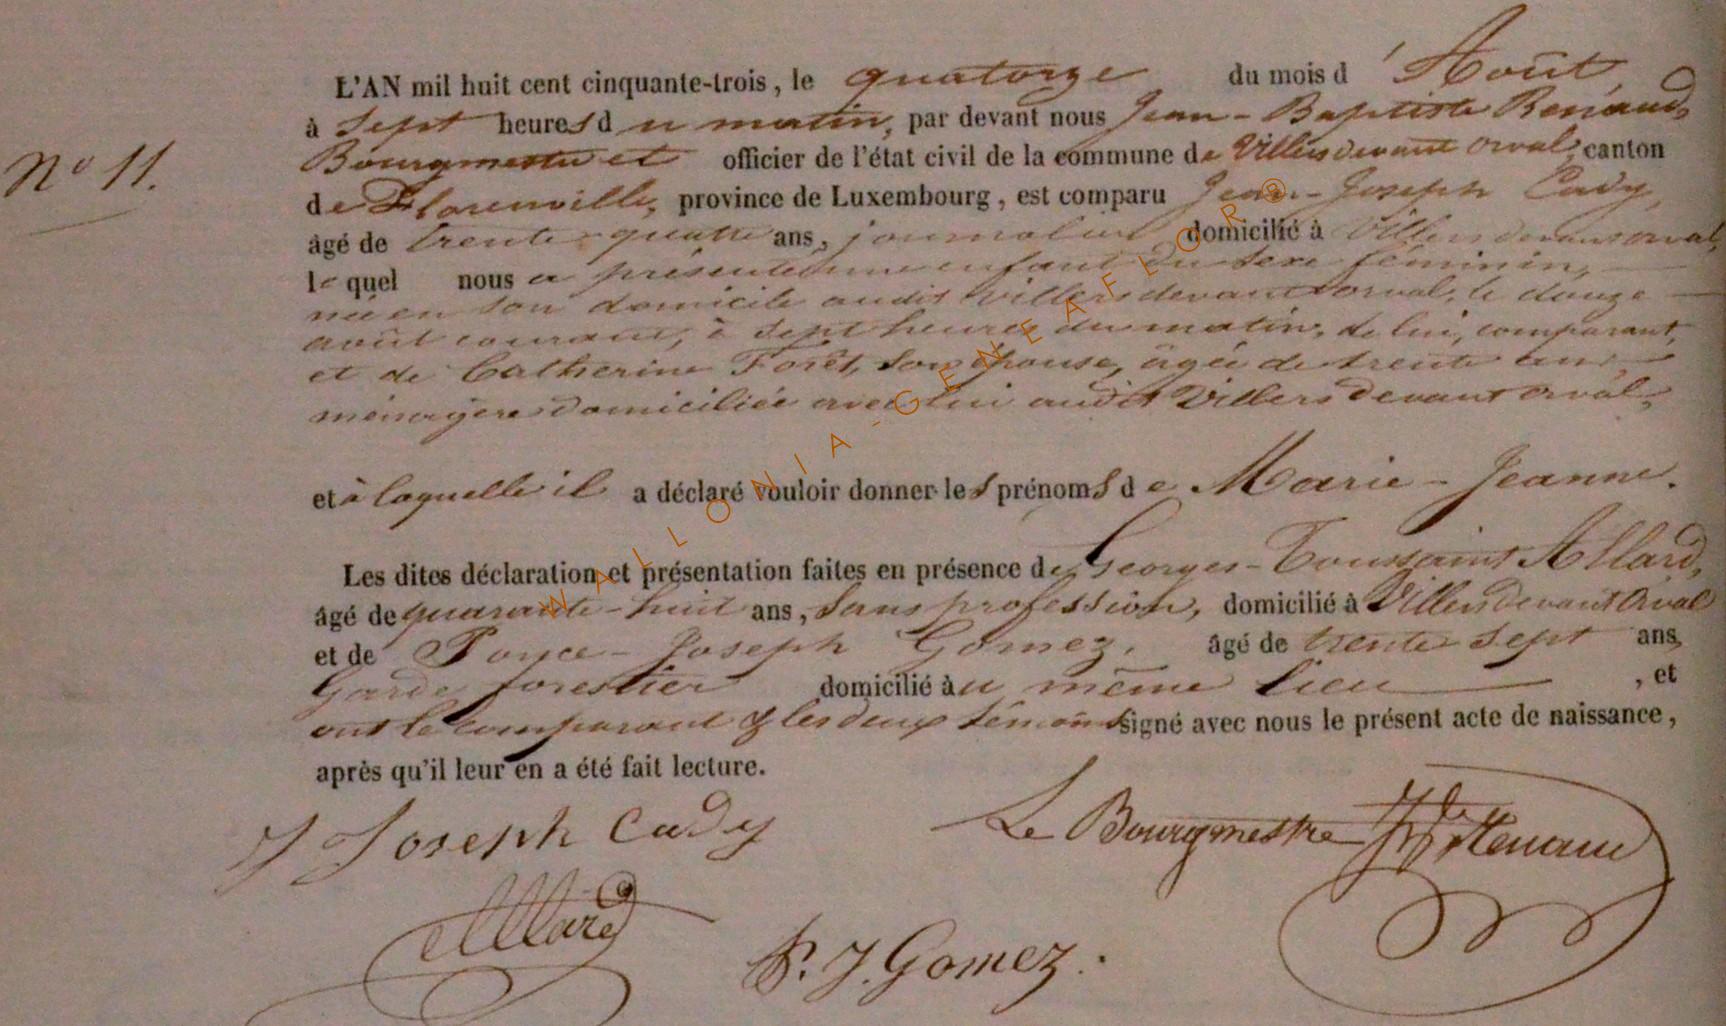 L'AN mil huit cent cinquante-trois, le quatorze du mois d'Août,
à sept heures du matin, par devant nous Jean-Baptiste Renaud,
N° 11.
Bourgmestre et officier de l'état civil de la commune de Villers devant orval, canton
de Florenville, province de Luxembourg, est comparu Jean-Joseph Cady,
âgé de trente-quatre ans, journalier domicilié à Villers devant orval,
lequel nous a présenté une enfant du sexe féminin,
née en son domicile audit Villers devant orval, le douze
août courant, à sept heures du matin, de lui, comparant,
et de Catherine Forêt, son épouse, âgée de trente ans,
ménagère domiciliée avec lui audit Villers devant orval,
et à laquelle il a déclaré vouloir donner les prénoms de Marie-Jeanne.
Les dites déclaration et présentation faites en présence de Georges-Toussaint Allard,
âgé de quarante-huit ans, sans profession, domicilié à Villers devant Orval
et de Ponce-Joseph Gomez, âgé de trente sept ans,
Garde forestier domicilié au même lieu, et
ont le comparant & les deux témoins signé avec nous le présent acte de naissance,
après qu'il leur en a été fait lecture.
J Joseph Cady Le Bourgmestre Renaud
Allard
P. J. Gomez.
WALLONIA-GENEAFLOR®